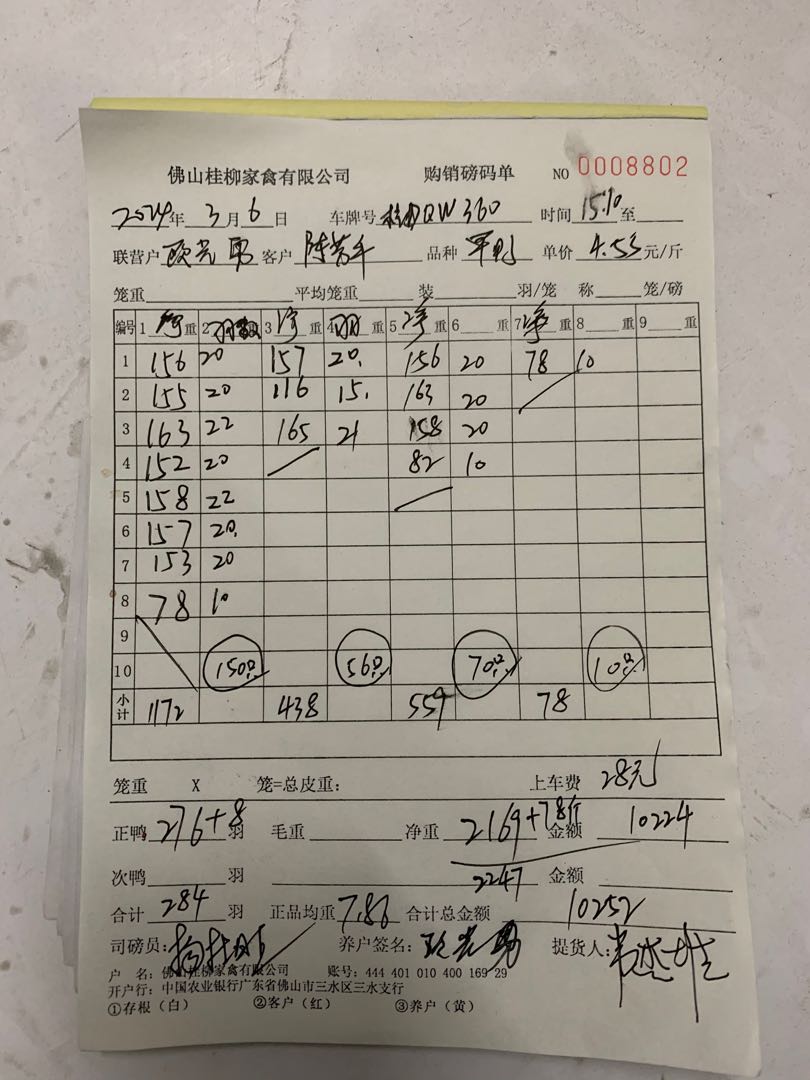 佛山桂柳家禽有限公司 购销磅码单 NO 0008802
2024年 3月 6日 车牌号 QW360 时间 15:10 至
联营户 欧光男 客户 陈 品种 单价 4.53 元/斤
笼重 平均笼重 装 羽/笼 称 笼/磅
编号 1 净重 2 羽数 3 净重 4 羽重 5 净重 6 重 7 净重 8 重 9 重
1 156 20 157 20. 156 20 78 10
2 155 20 116 15. 163 20
3 163 22 165 21 158 20
4 152 20 82 10
5 158 22
6 157 20.
7 153 20
8 78 10
9
10 150只 56只 70只 10只
小计 1172 438 559 78
笼重 X 笼=总皮重: 上车费 28元
正鸭 276+8 羽 毛重 净重 2169+78斤 金额 10224
次鸭 羽 2247 金额
合计 284 羽 正品均重 7.86 合计总金额 10252
司磅员: 养户签名: 欧光男 提货人:
户 名: 佛山桂柳家禽有限公司 账号: 444 401 010 400 169 29
开户行: 中国农业银行广东省佛山市三水区三水支行
①存根(白) ②客户(红) ③养户(黄)